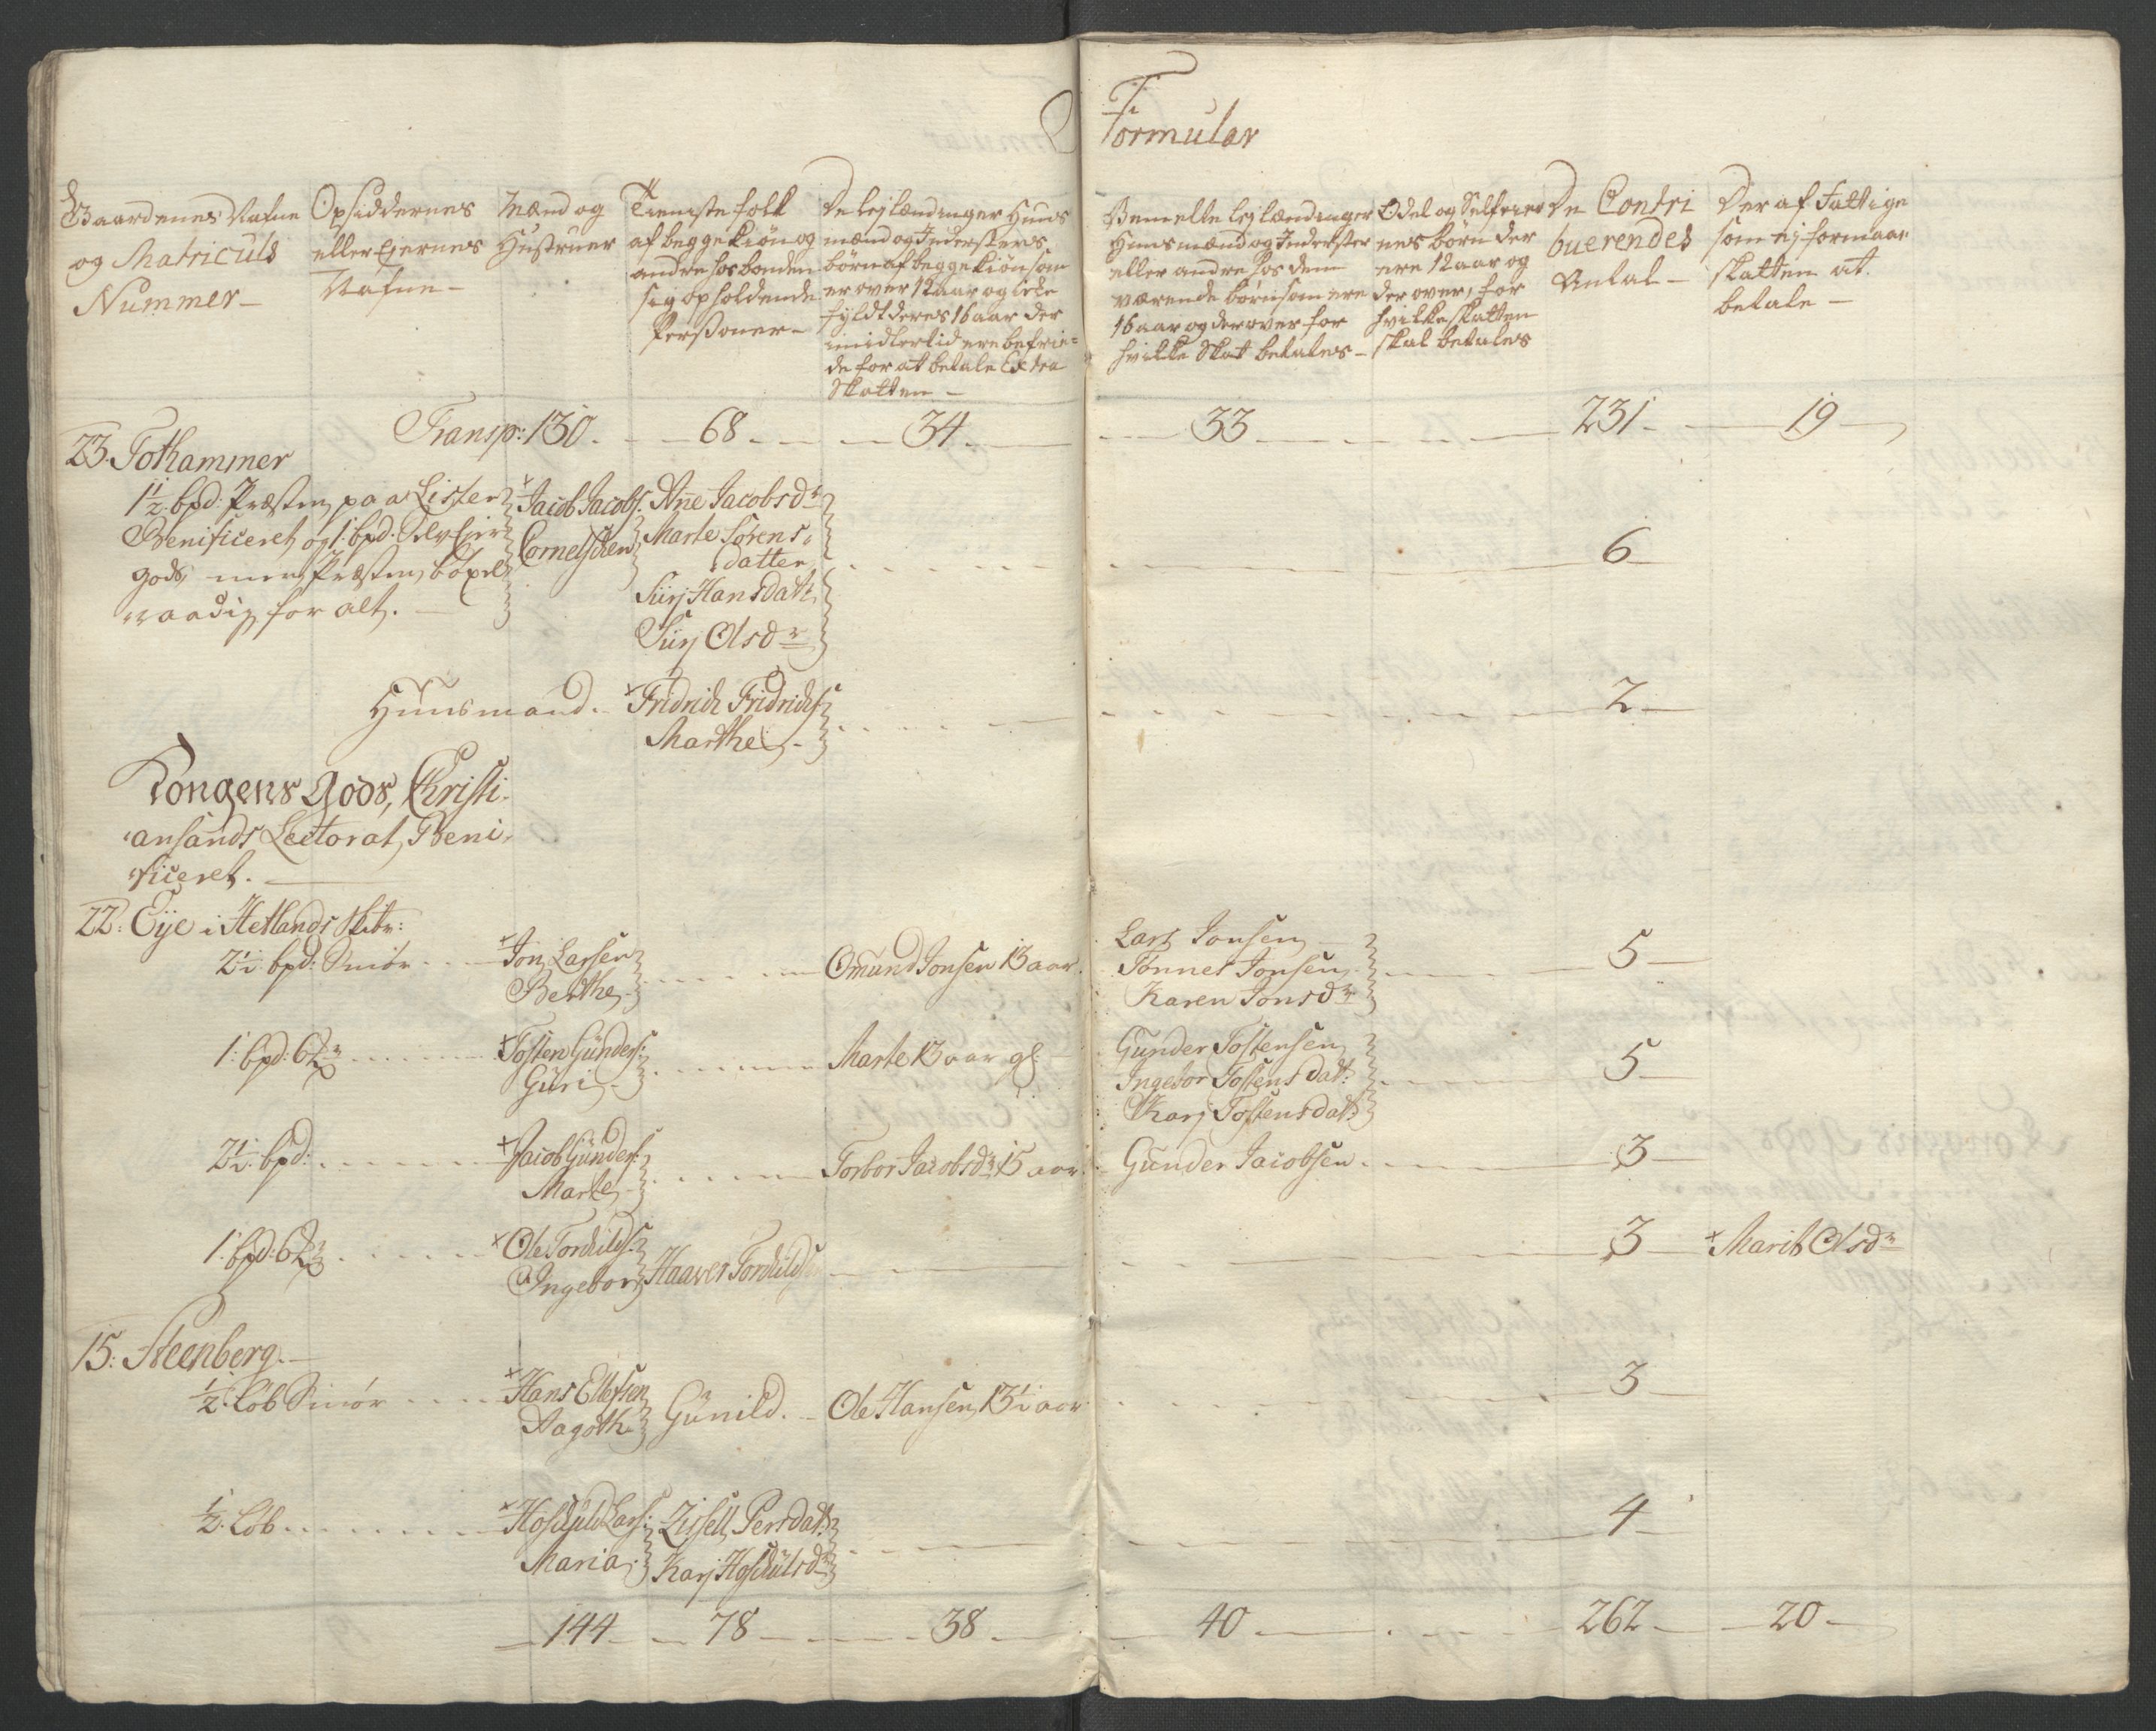 Formular
Gaardenes Nafne
og Matriculs
Nummer –
Opsiddernes
eller Ejernes
Nafne –
Mænd og
Hustruer
Tieniste folk
af begge kiøn og
andre hos bonden
sig opholdende
Personer –
De lejlændinger Huus
mænd og Indersters
børn af begge kiøn som
er over 12 aar og icke
fyldt deres 16 aar der
imidlertid ere befrie=
de for at betale Extra
Skatten –
Bemelte lejlændinger
Huusmænd og Inderster
eller andre hos dem
værende børn som ere
16 aar og derover for
hvilke Skat betales –
Odel og Selfeier
nes børn der
ere 12 aar og
der over, for
hvilke skatten
skal betales
De Contri
buerendes
Antal –
Der af Fattige
som ej formaar
skatten at
betale –
Transp: 130. 68 34 33 231 19
23. Tothammer
1½ bpd: Præsten paa Lister
Benificeret og 1: bpd.
gods, men Præsten bøxel
raadig for alt. –
+ Jacob Jacobs.
Cornelschen
Ane Jacobsdr
Marte Sörens
datter
Siirj Hansdatr
Siirj Olsdr
6
Huusmand. + Fridrich Fridrichs
Marthe
2
Kongens Gods, Christi-
ansands Lectorat, Beni-
ficeret.
22: Eÿe i Hetlands Skibr:
2½ bpd: Smör + Jon Larsen
Berthe
Omund Jonsen 13 aar
Lars Jonsen
Tønnes Jonsen
Karen Jonsdr
5
1: bpd: 6 + Tosten Günders:
Güri
Marte 13 aar gl:
Gunder Tostensen
Ingebor Tostens dat:
Karj Tostensdat:
5
2½ bpd: + Jacob Günders:
Marte
Torbor Jacobsdr 15 aar
Gunder Jacobsen
3
1: bpd: 6 + Ole Torkilds:
Ingebor
Haaver Torkilds
3
+ Marit Olsdr
15: Steenberg.
½ Löb Smör + Hans Ellefsen
Aagoth
Günild.
Ole Hansen 13½ aar
3
½ Löb + Hoskuld Lars:
Maria
Zissell Persdat:
Karj Hoskulsdr
4
144 78 38 40 262 20